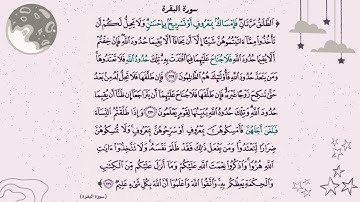 سورة البقرة
﴿ ٱلطَّلَٰقُ مَرَّتَانِۖ فَإِمۡسَاكُۢ بِمَعۡرُوفٍ أَوۡ تَسۡرِيحُۢ بِإِحۡسَٰنٖۗ وَلَا يَحِلُّ لَكُمۡ أَن
تَأۡخُذُواْ مِمَّآ ءَاتَيۡتُمُوهُنَّ شَيۡـًٔا إِلَّآ أَن يَخَافَآ أَلَّا يُقِيمَا حُدُودَ ٱللَّهِۖ فَإِنۡ خِفۡتُمۡ
أَلَّا يُقِيمَا حُدُودَ ٱللَّهِ فَلَا جُنَاحَ عَلَيۡهِمَا فِيمَا ٱفۡتَدَتۡ بِهِۦۗ تِلۡكَ حُدُودُ ٱللَّهِ فَلَا تَعۡتَدُوهَاۚ
وَمَن يَتَعَدَّ حُدُودَ ٱللَّهِ فَأُوْلَٰٓئِكَ هُمُ ٱلظَّٰلِمُونَ ﴿٢٢٩﴾ فَإِن طَلَّقَهَا فَلَا تَحِلُّ لَهُۥ مِنۢ بَعۡدُ
حَتَّىٰ تَنكِحَ زَوۡجًا غَيۡرَهُۥۗ فَإِن طَلَّقَهَا فَلَا جُنَاحَ عَلَيۡهِمَآ أَن يَتَرَاجَعَآ إِن ظَنَّآ أَن يُقِيمَا
حُدُودَ ٱللَّهِۗ وَتِلۡكَ حُدُودُ ٱللَّهِ يُبَيِّنُهَا لِقَوۡمٖ يَعۡلَمُونَ ﴿٢٣٠﴾ وَإِذَا طَلَّقۡتُمُ ٱلنِّسَآءَ
فَبَلَغۡنَ أَجَلَهُنَّ فَأَمۡسِكُوهُنَّ بِمَعۡرُوفٍ أَوۡ سَرِّحُوهُنَّ بِمَعۡرُوفٖۚ وَلَا تُمۡسِكُوهُنَّ
ضِرَارٗا لِّتَعۡتَدُواْۚ وَمَن يَفۡعَلۡ ذَٰلِكَ فَقَدۡ ظَلَمَ نَفۡسَهُۥۚ وَلَا تَتَّخِذُوٓاْ ءَايَٰتِ
ٱللَّهِ هُزُوٗاۚ وَٱذۡكُرُواْ نِعۡمَتَ ٱللَّهِ عَلَيۡكُمۡ وَمَآ أَنزَلَ عَلَيۡكُم مِّنَ ٱلۡكِتَٰبِ
وَٱلۡحِكۡمَةِ يَعِظُكُم بِهِۦۚ وَٱتَّقُواْ ٱللَّهَ وَٱعۡلَمُوٓاْ أَنَّ ٱللَّهَ بِكُلِّ شَيۡءٍ عَلِيمٞ ﴿٢٣١﴾ ﴾
(سورة البقرة)